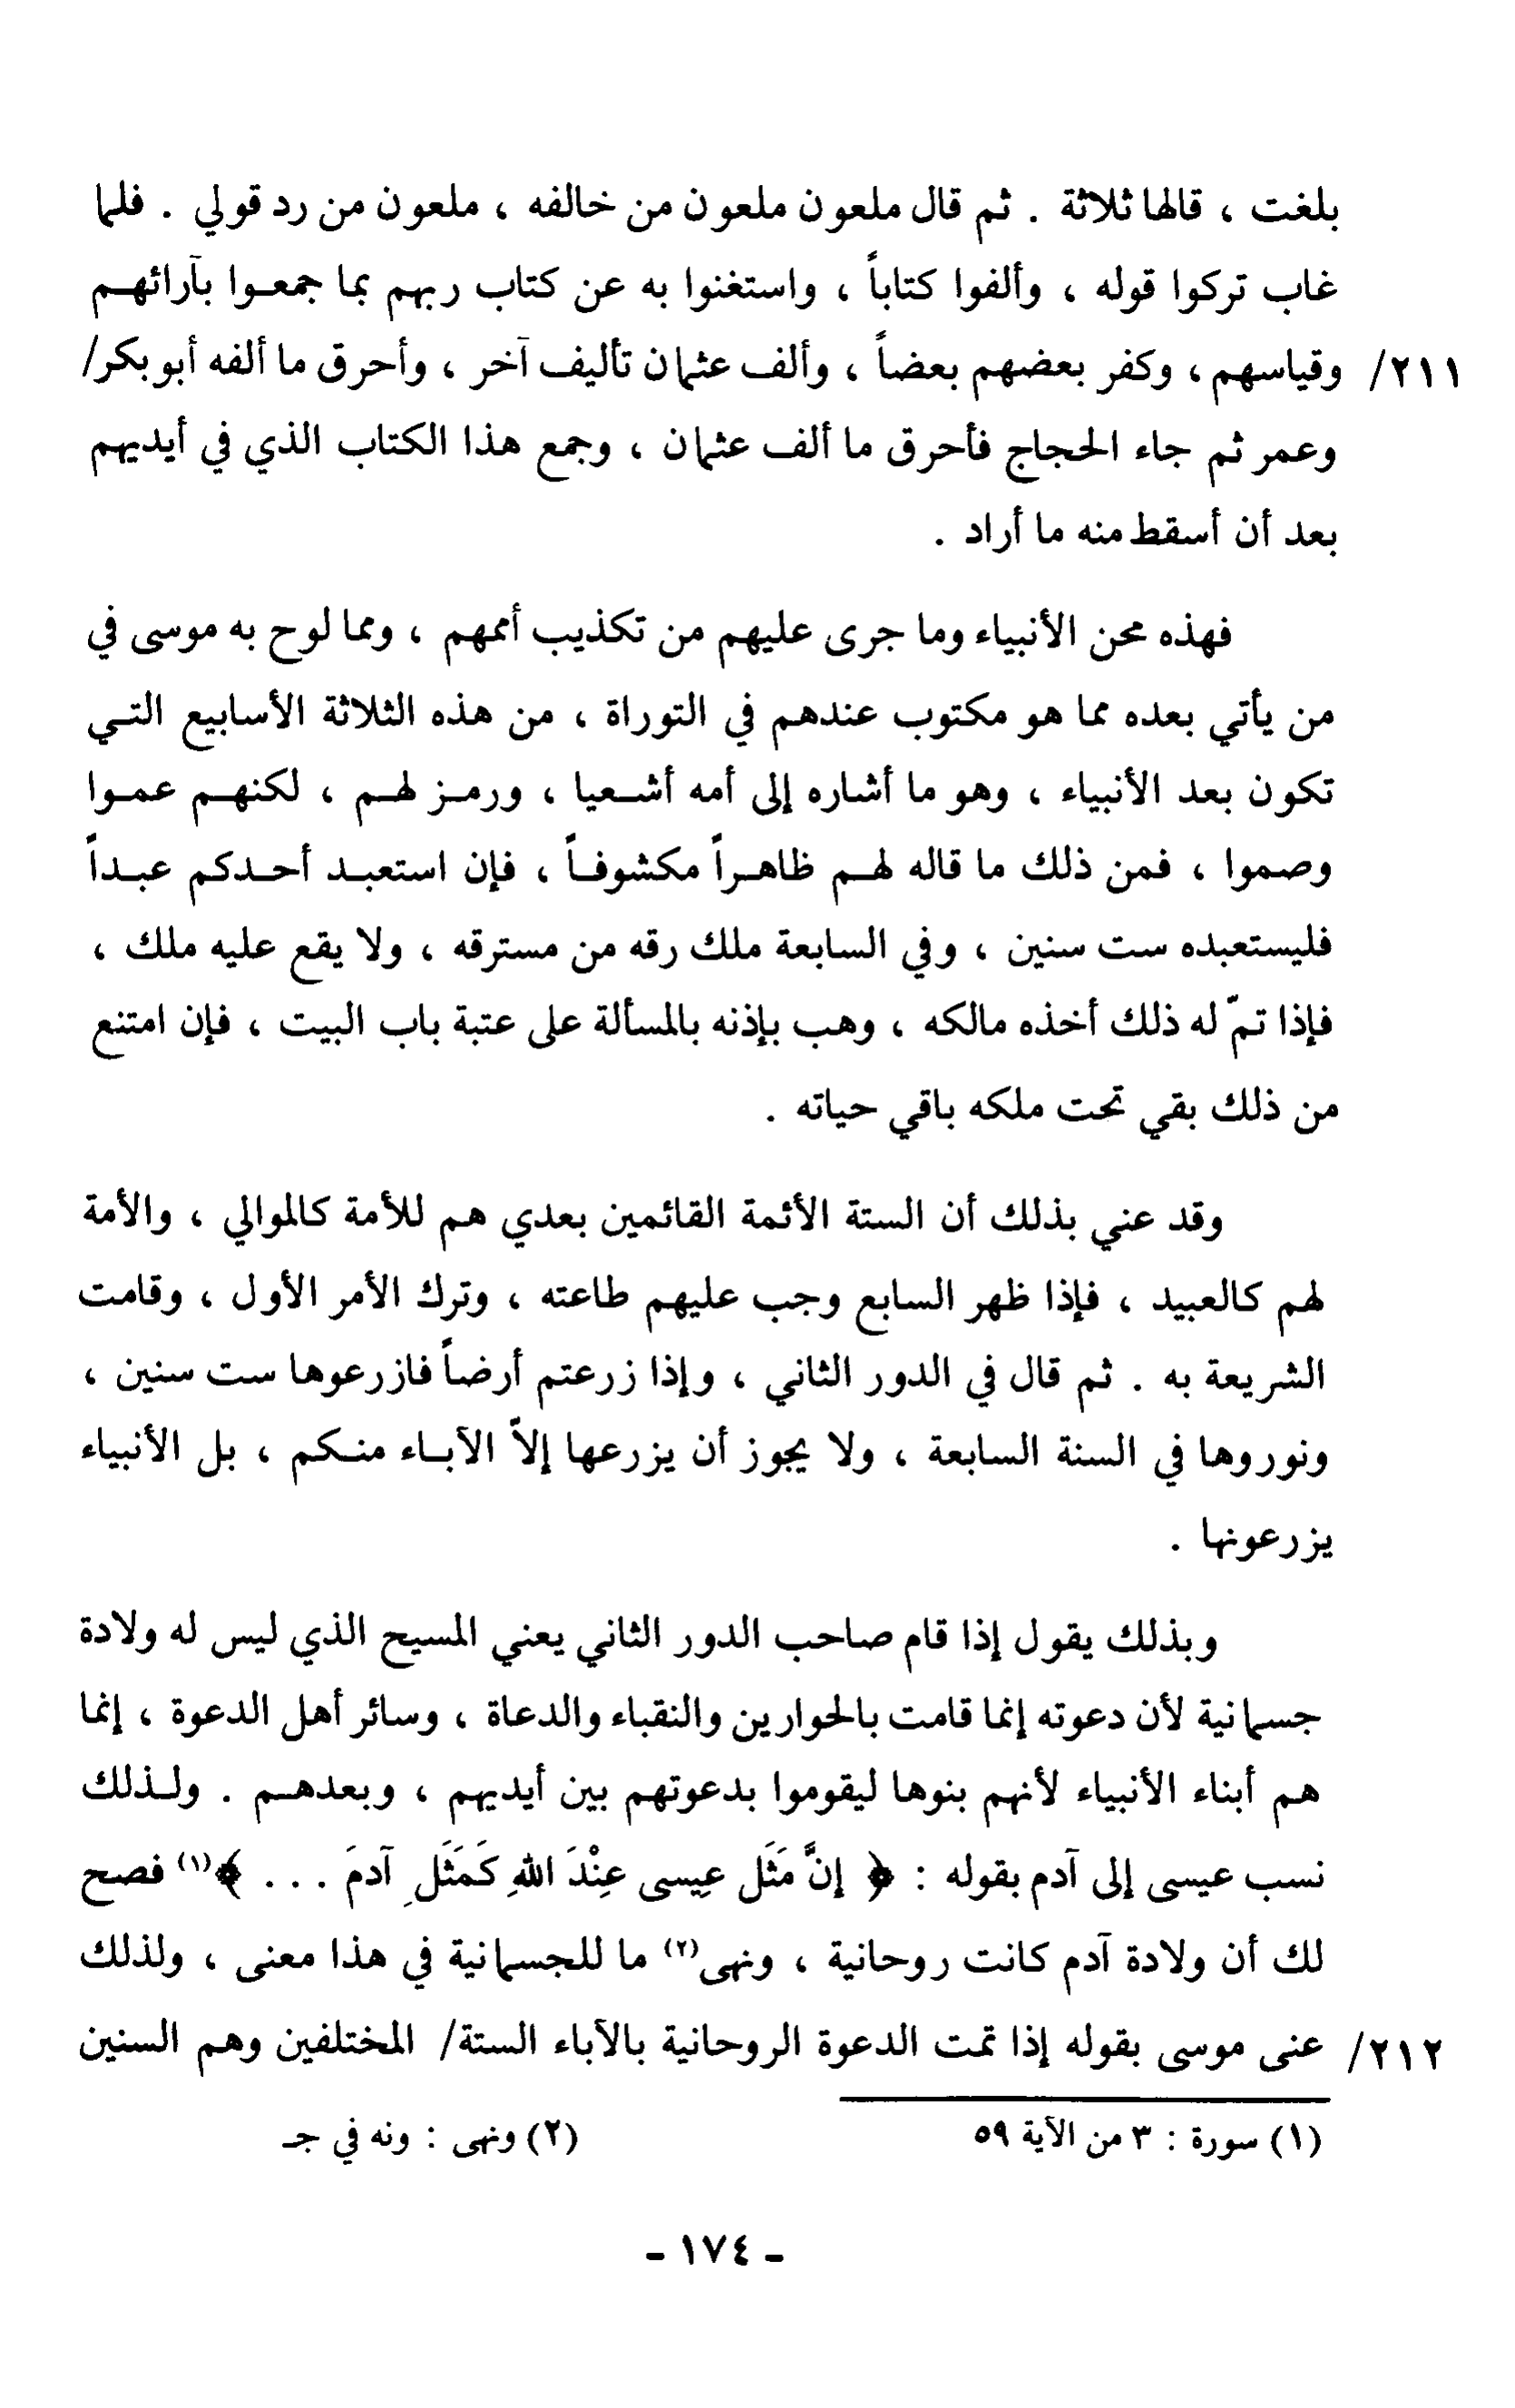 بلغت ، قالها ثلاثة . ثم قال ملعون ملعون من خالفه ، ملعون من رد قولي . فلما
غاب تركوا قوله ، وألفوا كتاباً ، واستغنوا به عن كتاب ربهم بما جمعوا بآرائهم
٢١١/ وقياسهم ، وكفر بعضهم بعضاً ، وألف عثمان تأليف آخر ، وأحرق ما ألفه أبو بكر/
وعمر ثم جاء الحجاج فأحرق ما ألف عثمان ، وجمع هذا الكتاب الذي في أيديهم
بعد أن أسقط منه ما أراد .
فهذه محن الأنبياء وما جرى عليهم من تكذيب أممهم ، ومما لوح به موسى في
من يأتي بعده مما هو مكتوب عندهم في التوراة ، من هذه الثلاثة الأسابيع التي
تكون بعد الأنبياء ، وهو ما أشاره إلى أمه أشعيا ، ورمز لهم ، لكنهم عموا
وصموا ، فمن ذلك ما قاله لهم ظاهراً مكشوفاً ، فإن استعبد أحدكم عبداً
فليستعبده ست سنين ، وفي السابعة ملك رقه من مسترقه ، ولا يقع عليه ملك ،
فإذا تمّ له ذلك أخذه مالكه ، وهب بإذنه بالمسألة على عتبة باب البيت ، فإن امتنع
من ذلك بقي تحت ملكه باقي حياته .
وقد عني بذلك أن الستة الأئمة القائمين بعدي هم للأمة كالموالي ، والأمة
لهم كالعبيد ، فإذا ظهر السابع وجب عليهم طاعته ، وترك الأمر الأول ، وقامت
الشريعة به . ثم قال في الدور الثاني ، وإذا زرعتم أرضاً فازرعوها ست سنين ،
ونوروها في السنة السابعة ، ولا يجوز أن يزرعها إلاّ الآباء منكم ، بل الأنبياء
يزرعونها .
وبذلك يقول إذا قام صاحب الدور الثاني يعني المسيح الذي ليس له ولادة
جسمانية لأن دعوته إنما قامت بالحوارين والنقباء والدعاة ، وسائر أهل الدعوة ، إنما
هم أبناء الأنبياء لأنهم بنوها ليقوموا بدعوتهم بين أيديهم ، وبعدهم . ولذلك
نسب عيسى إلى آدم بقوله : ﴿ إنَّ مَثَل عِيسى عِنْدَ اللهِ كَمَثَلِ آدمَ . . . ﴾(١) فصح
لك أن ولادة آدم كانت روحانية ، ونهى(٢) ما للجسمانية في هذا معنى ، ولذلك
٢١٢/ عنى موسى بقوله إذا تمت الدعوة الروحانية بالآباء الستة/ المختلفين وهم السنين
(١) سورة : ٣ من الآية ٥٩ (٢) ونهى : ونه في جـ
- ١٧٤ -